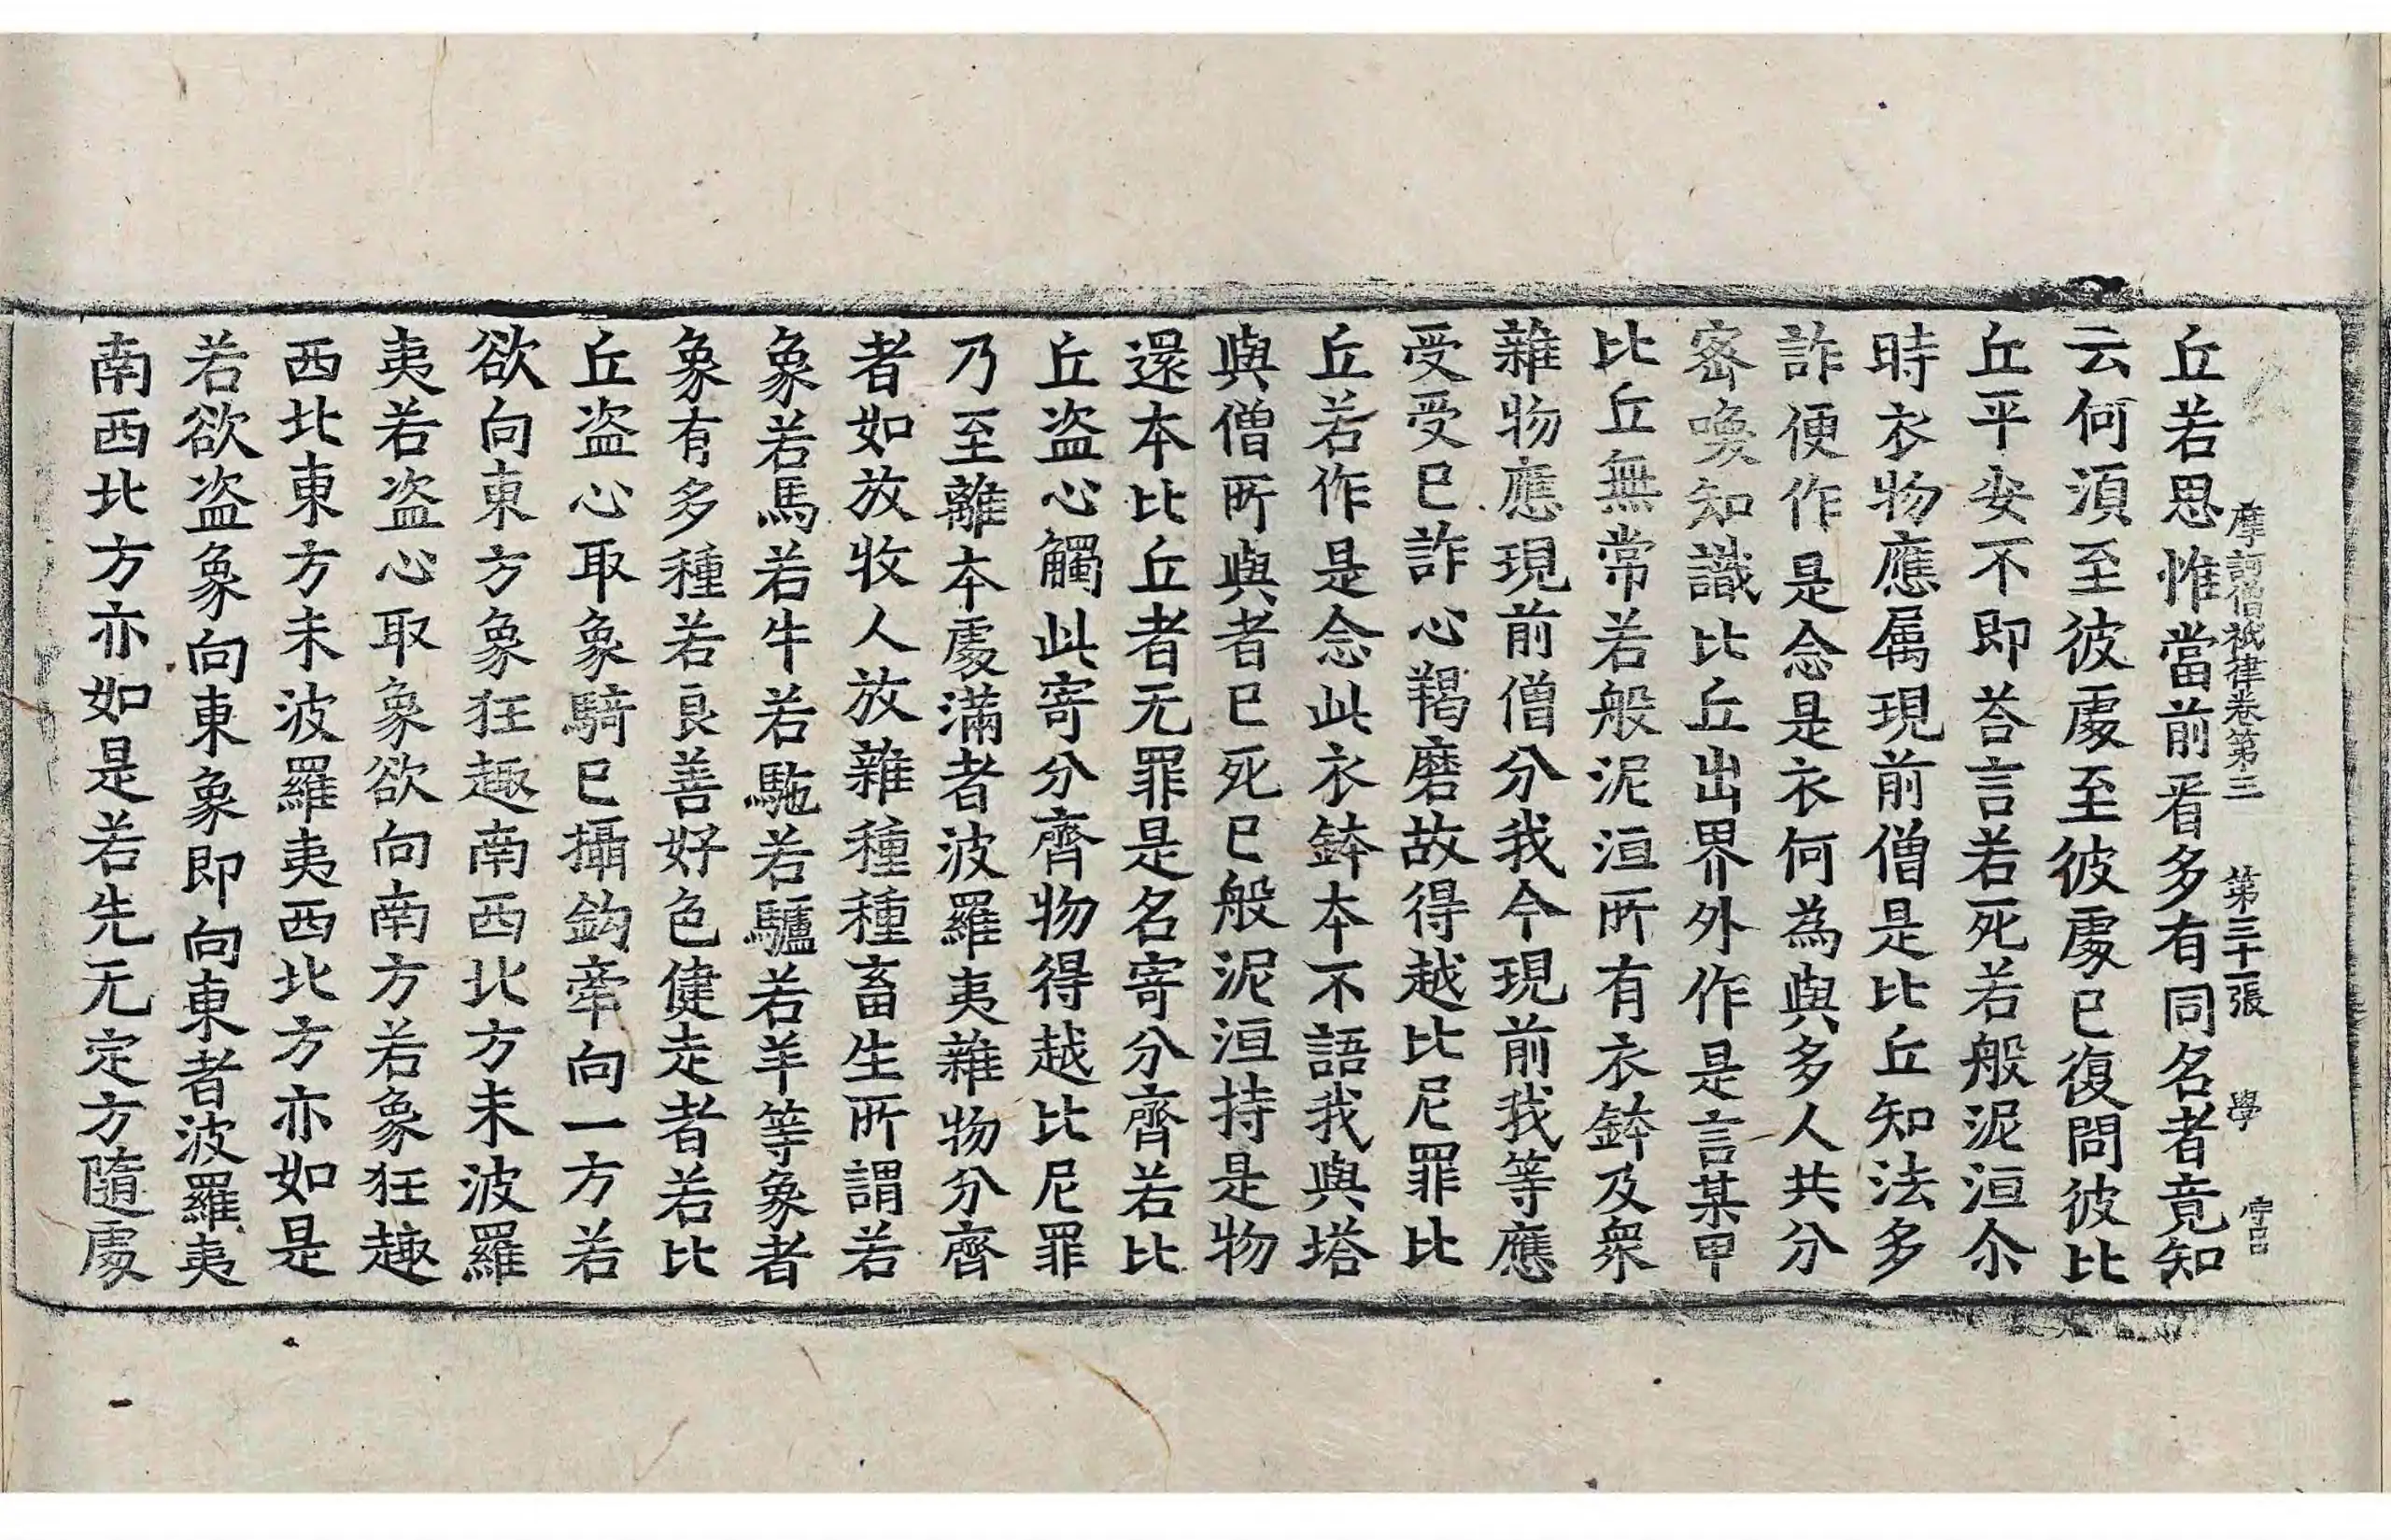 摩訶僧祇律卷第三　第三十一張　學
丘若思惟當前看多有同名者竟知
云何湏至彼處至彼處已復問彼比
丘平安不即荅言若死若般泥洹尒
時衣物應属現前僧是比丘知法多
詐便作是念是衣何為與多人共分
宻喚知識比丘出界外作是言某甲
比丘無常若般泥洹所有衣鉢及衆
雜物應現前僧分我今現前我等應
受受已詐心羯磨故得越比尼罪比
丘若作是念此衣鉢本不語我與塔
與僧所與者已死已般泥洹持是物
還本比丘者无罪是名寄分齊若比
丘盗心觸此寄分齊物得越比尼罪
乃至離本處滿者波羅夷雜物分齊
者如放牧人放雜種種畜生所謂若
象若馬若牛若駞若驢若羊等象者
象有多種若良善好色健走者若比
丘盗心取象騎已攝鈎牽向一方若
欲向東方象狂趣南西北方未波羅
夷若盗心取象欲向南方若象狂趣
西北東方未波羅夷西北方亦如是
若欲盗象向東象即向東者波羅夷
南西北方亦如是若先无定方隨處